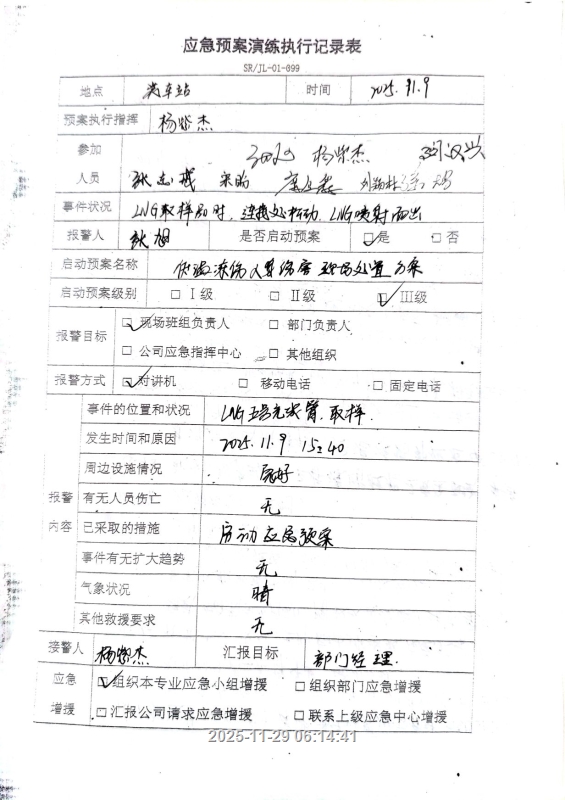 应急预案演练执行记录表
SR/JL-01-099
地点 装车站 时间 2025.11.9
预案执行指挥 杨紫杰
参加 杨紫杰
人员
事件状况 LNG取样品时，连接处松动，LNG喷射而出
报警人 是否启动预案 ☑是 □否
启动预案名称 低温冻伤人事伤害现场处置方案
启动预案级别 □Ⅰ级 □Ⅱ级 ☑Ⅲ级
报警目标 ☑现场班组负责人 □部门负责人
□公司应急指挥中心 □其他组织
报警方式 ☑对讲机 □移动电话 □固定电话
报警内容
事件的位置和状况 LNG 装车臂.取样.
发生时间和原因 2025.11.9 15:40
周边设施情况 良好
有无人员伤亡 无
已采取的措施 启动应急预案
事件有无扩大趋势 无
气象状况 晴
其他救援要求 无
接警人 杨紫杰 汇报目标 部门经理.
应急增援
☑组织本专业应急小组增援 □组织部门应急增援
□汇报公司请求应急增援 □联系上级应急中心增援
2025-11-29 06:14:41